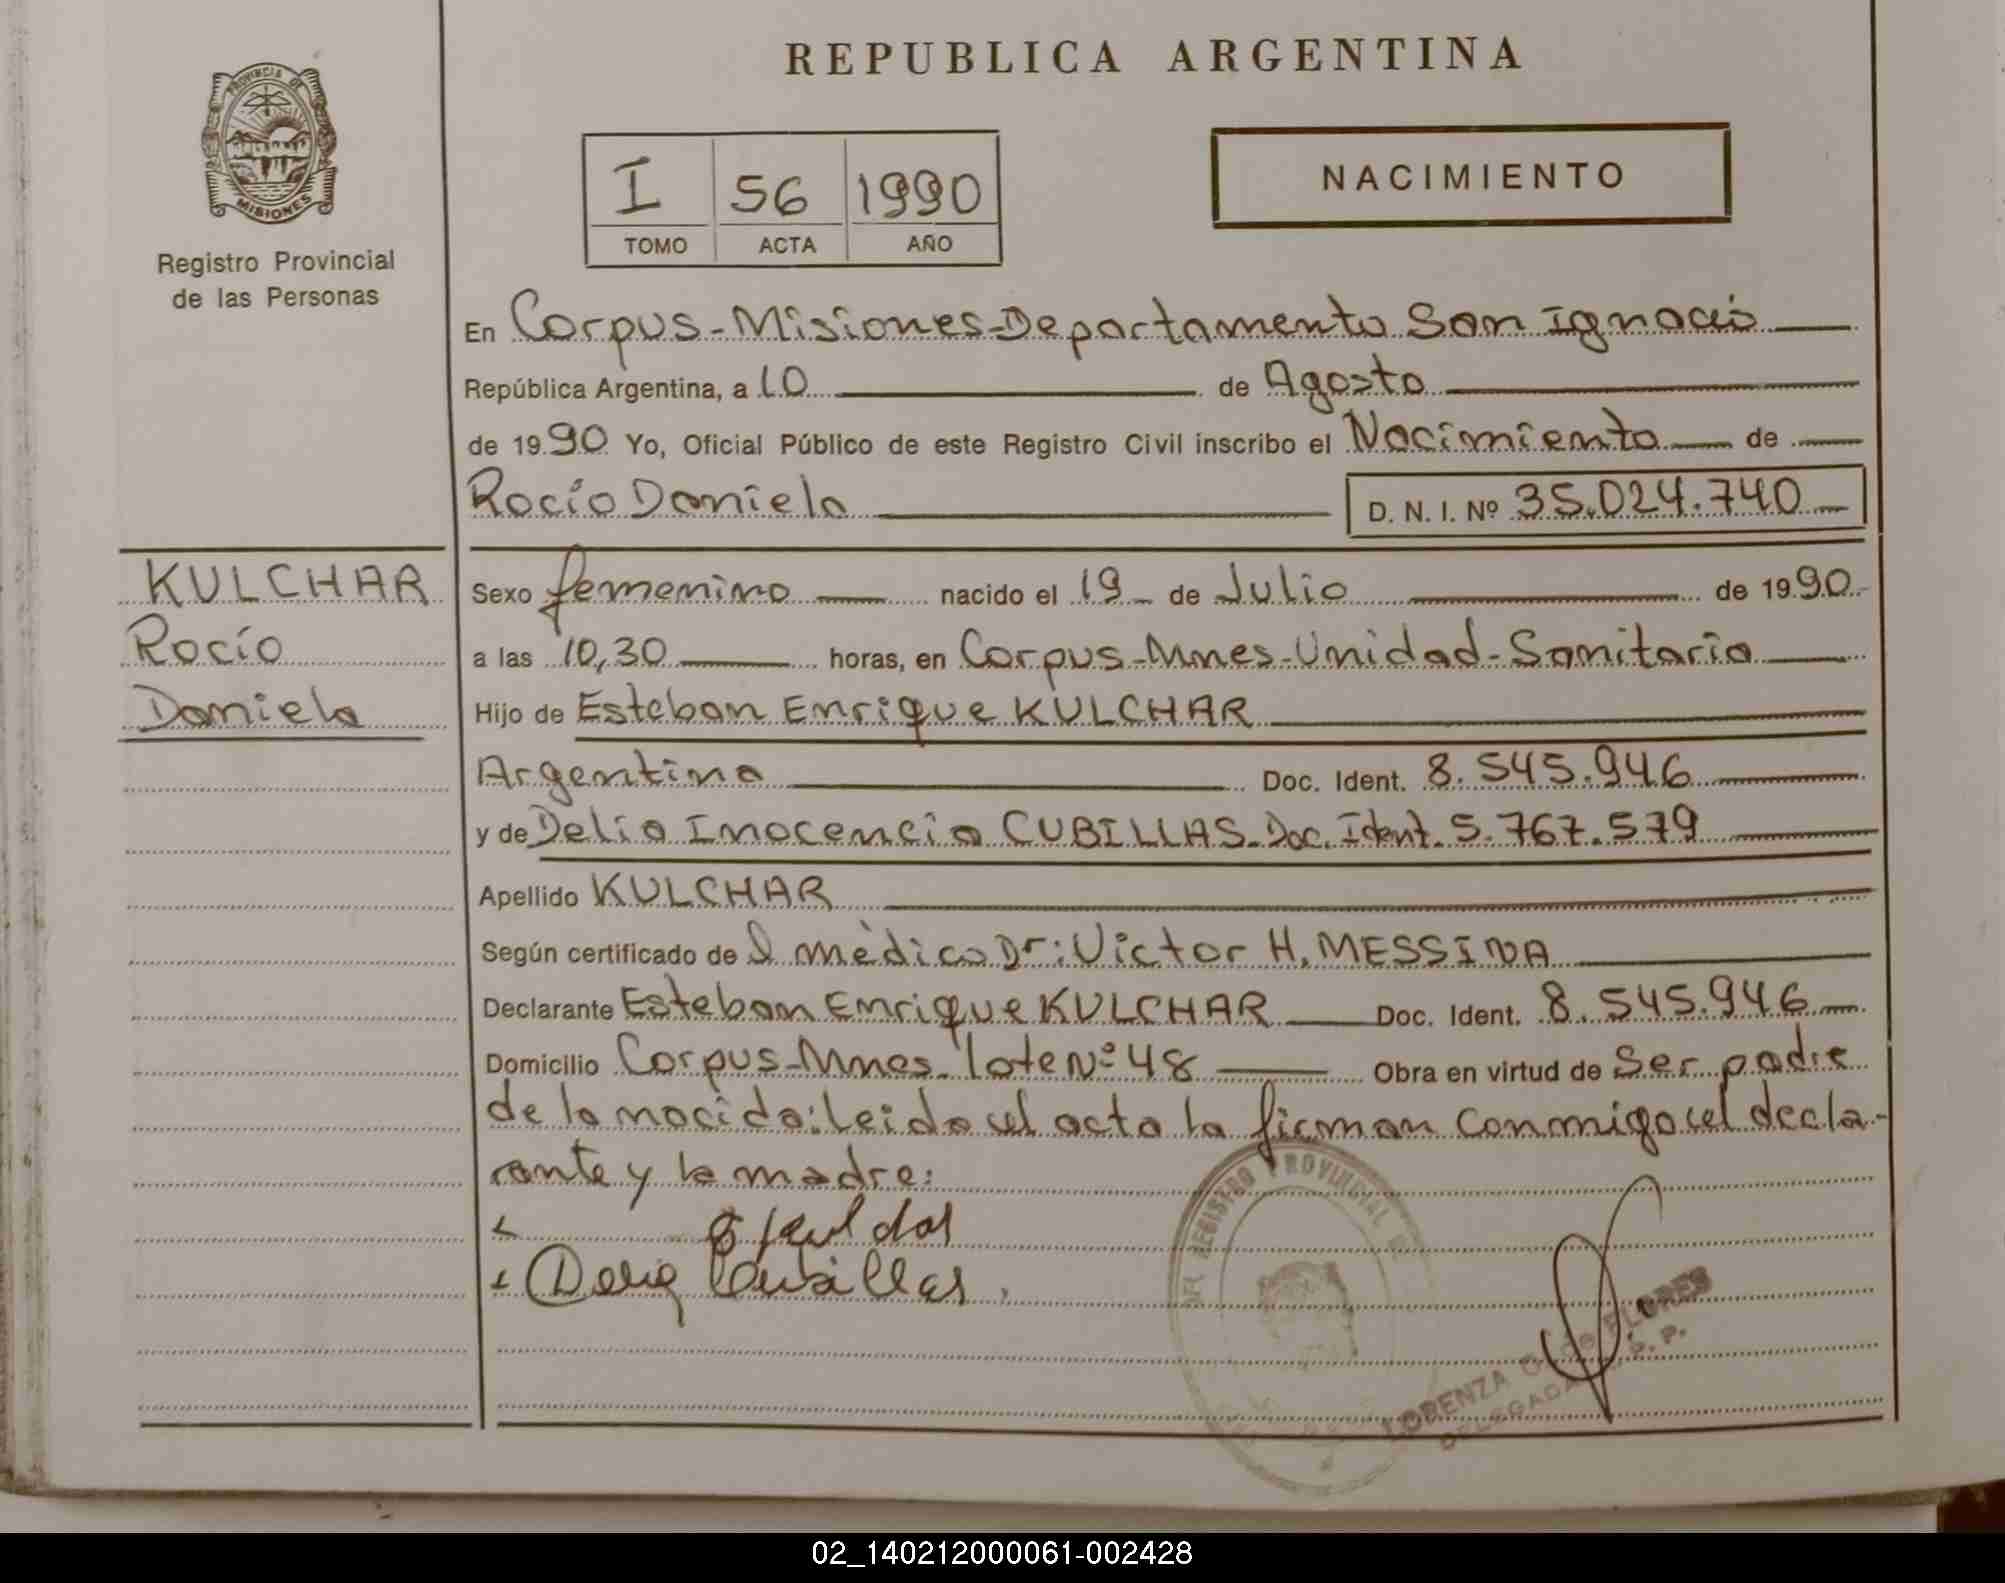 REPUBLICA ARGENTINA
PROVINCIA DE
MISIONES
Registro Provincial
de las Personas
I 56 1990
TOMO ACTA AÑO
NACIMIENTO
En Corpus-Misiones-Departamento San Ignacio
República Argentina, a 10 de Agosto
de 1990 Yo, Oficial Público de este Registro Civil inscribo el Nacimiento de
Rocío Daniela D. N. I. Nº 35.024.740
KULCHAR
Rocío
Daniela
Sexo femenino nacido el 19 de Julio de 1990
a las 10,30 horas, en Corpus-Mnes-Unidad-Sanitaria
Hijo de Esteban Enrique KULCHAR
Argentina Doc. Ident. 8.545.946
y de Delia Inocencia CUBILLAS-Doc. Ident. 5.767.579
Apellido KULCHAR
Según certificado del médico Dr: Victor H. MESSINA
Declarante Esteban Enrique KULCHAR Doc. Ident. 8.545.946
Domicilio Corpus-Mnes-lote Nº 48 Obra en virtud de Ser padre
de la nacida: Leida el acta la firman conmigo el decla-
rante y la madre:
Delia Cubillas
DEL REGISTRO PROVINCIAL DE
LORENZA de FLORES
DELEGADA S. P.
02_140212000061-002428